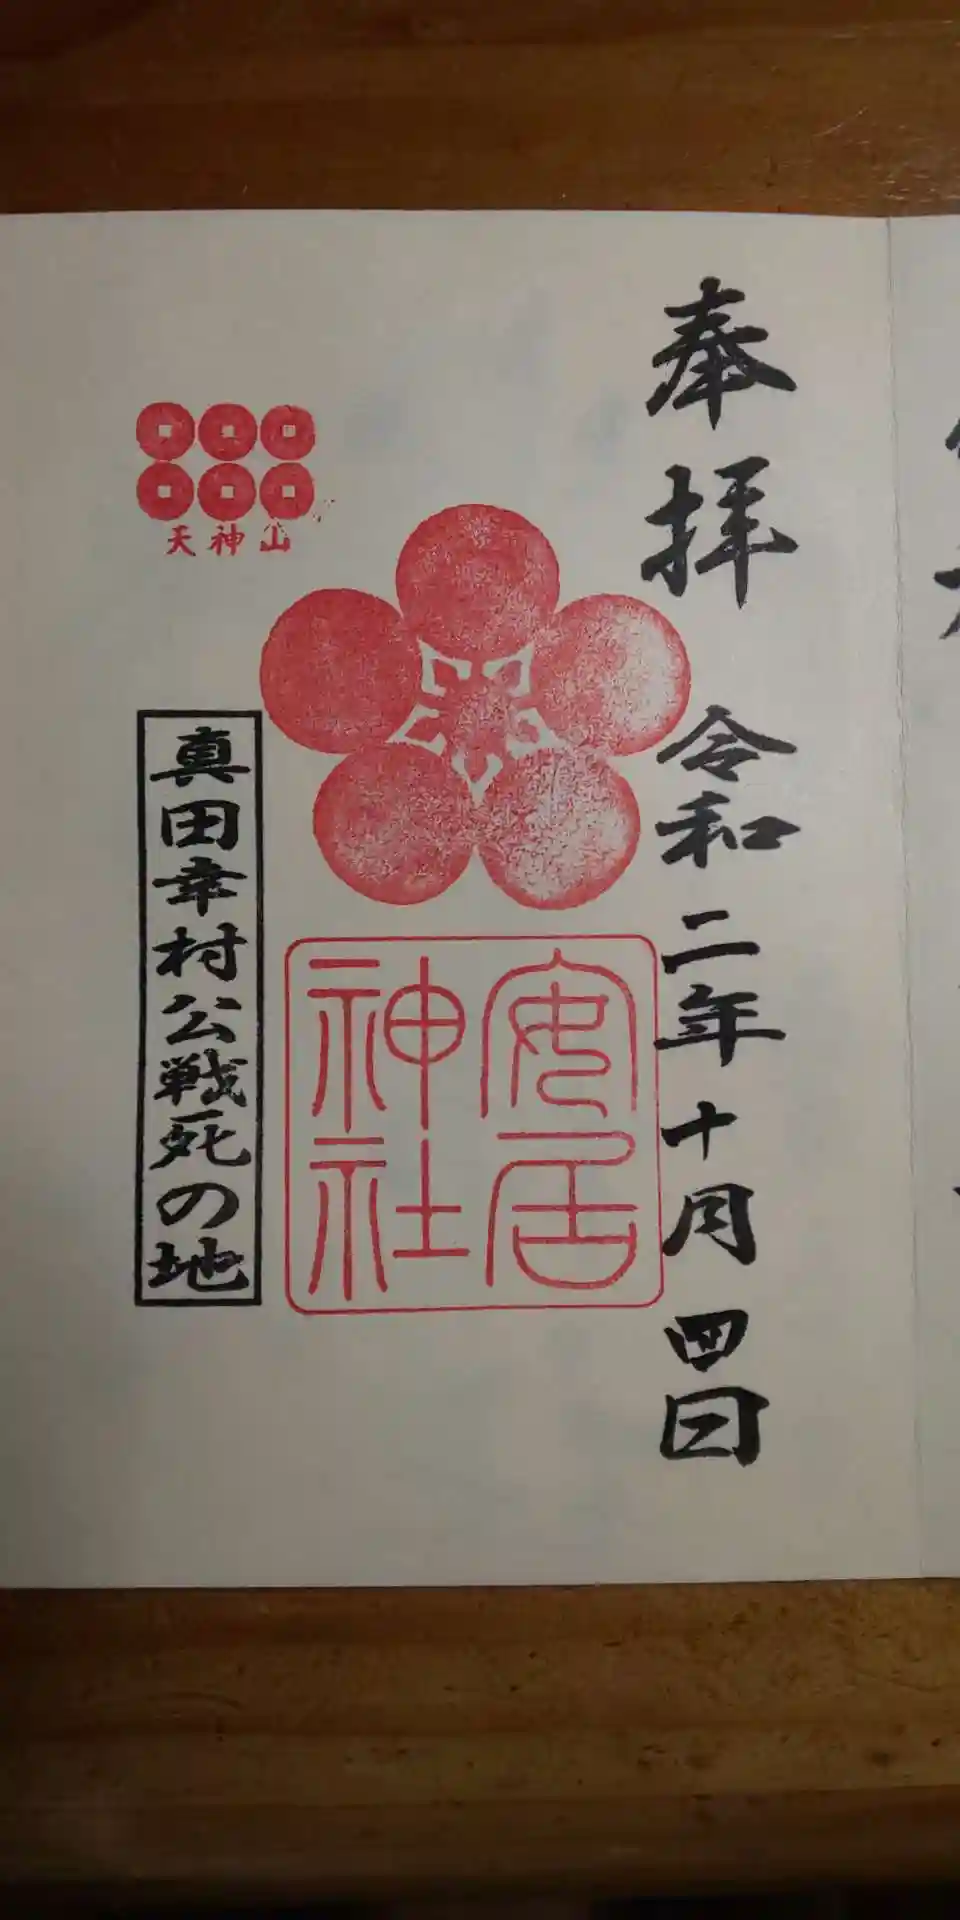 奉拝
令和二年十月四日
天神山
安居
神社
真田幸村公戦死の地